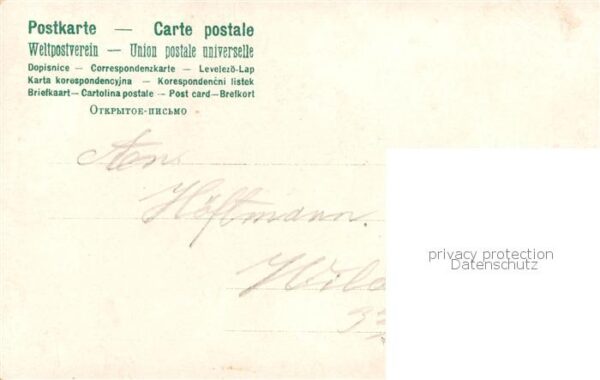 Postkarte — Carte postale
Weltpostverein — Union postale universelle
Dopisnice — Correspondenzkarte — Levelező-Lap
Karta korespondencyjna — Korespondenčni listek
Briefkaart—Cartolina postale — Post card—Brefkort
Открытое-письмо
Höftmann.
privacy protection
Datenschutz